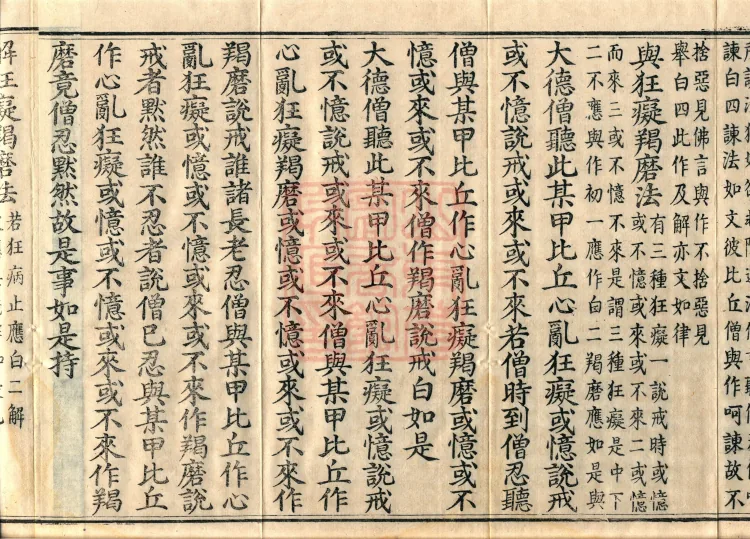 諫白四諫法如文彼比丘僧與作呵諫故不
捨惡見佛言與作不捨惡見
舉白四此作及解亦文如律
與狂癡羯磨法有三種狂癡一說戒時或憶
或不憶或來或不來二或憶
而來三或不憶不來是謂三種狂癡是中下
二不應與作初一應作白二羯磨應如是與
大德僧聽此某甲比丘心亂狂癡或憶說戒
或不憶說戒或來或不來若僧時到僧忍聽
僧與某甲比丘作心亂狂癡羯磨或憶或不
憶或來或不來僧作羯磨說戒白如是
大德僧聽此某甲比丘心亂狂癡或憶說戒
或不憶說戒或來或不來僧與某甲比丘作
心亂狂癡羯磨或憶或不憶或來或不來作
羯磨說戒誰諸長老忍僧與某甲比丘作心
亂狂癡或憶或不憶或來或不來作羯磨說
戒者默然誰不忍者說僧已忍與某甲比丘
作心亂狂癡或憶或不憶或來或不來作羯
磨竟僧忍默然故是事如是持
解狂癡羯磨法若狂病止應白二解